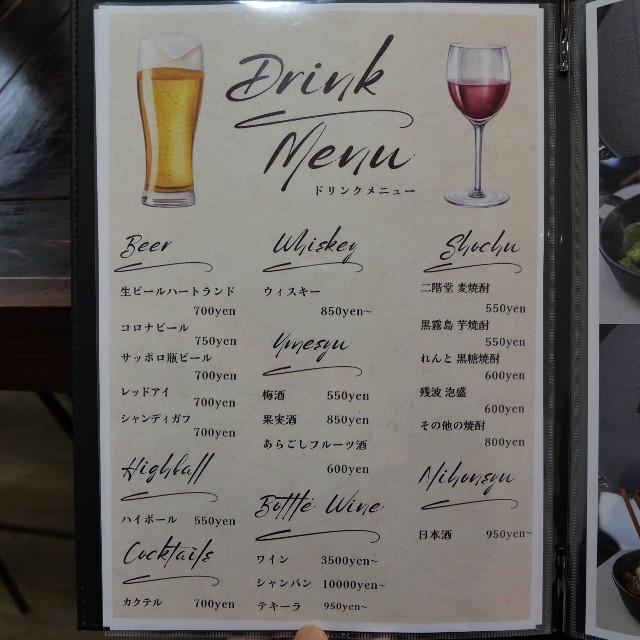 Drink
Menu
ドリンクメニュー
Beer
生ビールハートランド
700yen
コロナビール
750yen
サッポロ瓶ビール
700yen
レッドアイ
700yen
シャンディガフ
700yen
Highball
ハイボール 550yen
Cocktails
カクテル 700yen
Whiskey
ウィスキー
850yen~
Umesyu
梅酒 550yen
果実酒 850yen
あらごしフルーツ酒
600yen
Bottle Wine
ワイン 3500yen~
シャンパン 10000yen~
テキーラ 950yen~
Shochu
二階堂 麦焼酎
550yen
黒霧島 芋焼酎
550yen
れんと 黒糖焼酎
600yen
残波 泡盛
600yen
その他の焼酎
800yen
Nihonsyu
日本酒 950yen~